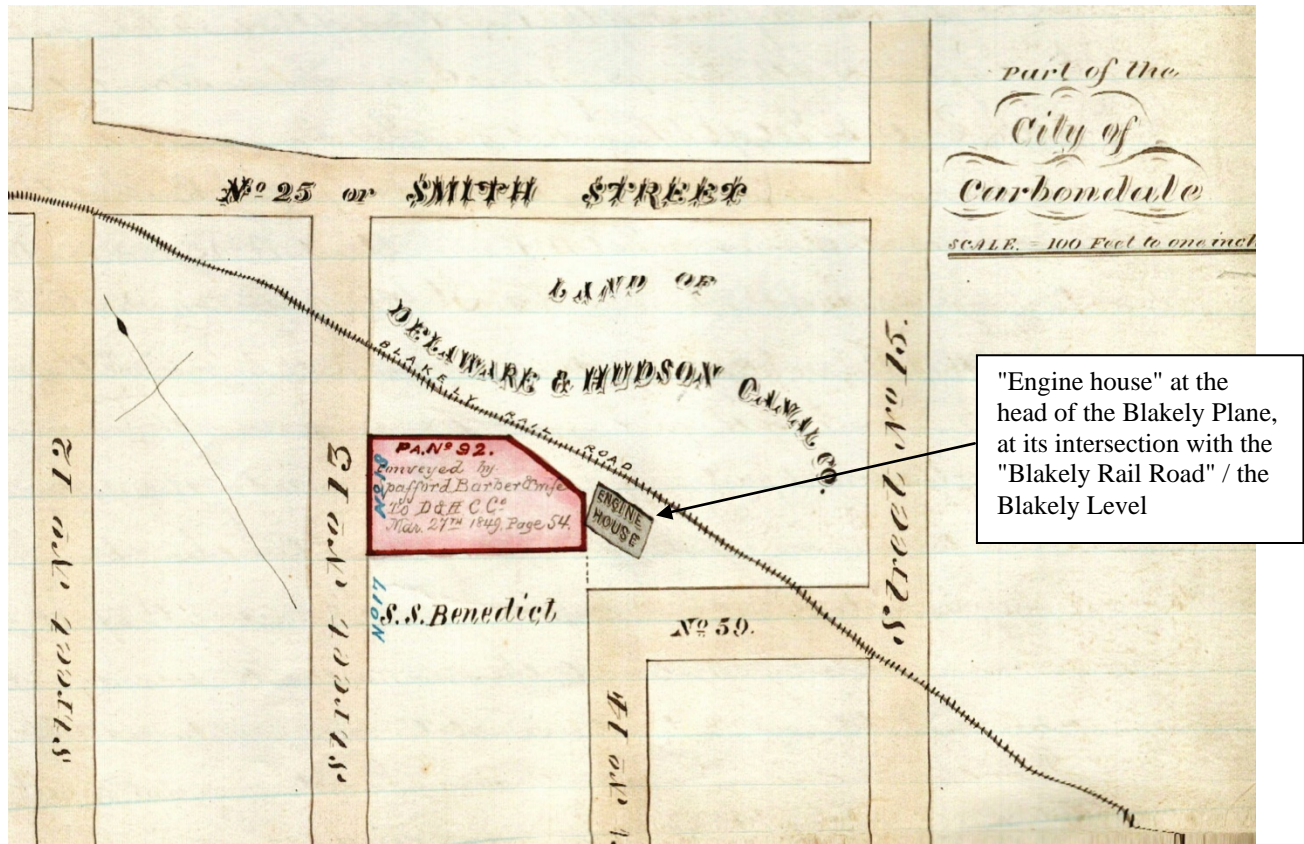 Part of the
City of
Carbondale
SCALE. = 100 Feet to one inch
No 25 or SMITH STREET
LAND OF
DELAWARE & HUDSON CANAL CO.
BLAKELY RAIL ROAD
PA. No 92.
Conveyed by
Spafford Barber & wife
To D & H C Co
Mar. 27TH 1849, Page 54.
No 18
No 17
ENGINE
HOUSE
S. S. Benedict
No 59.
Street No 12
Street No 13
No 14
Street No 15.
"Engine house" at the
head of the Blakely Plane,
at its intersection with the
"Blakely Rail Road" / the
Blakely Level